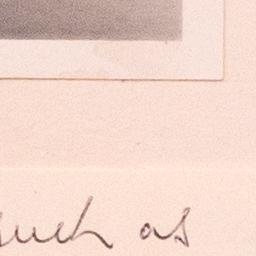 such as